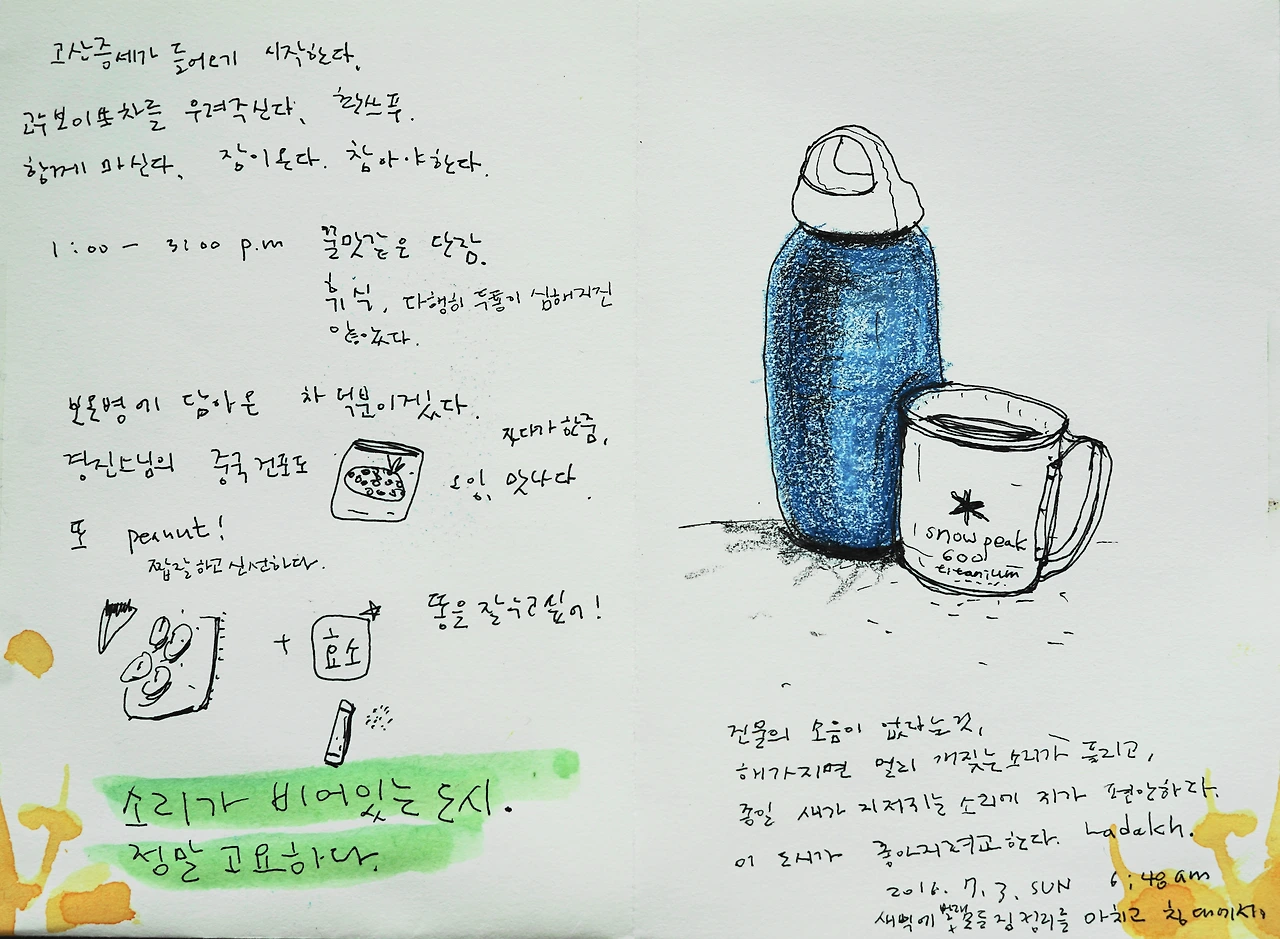 고산증세가 들어오기 시작한다.
보이쑥차를 우려주신다. 한스푸.
함께 마신다. 잠이온다. 참아야한다.
1:00 - 3:00 p.m 꿀맛같은 단잠.
휴식, 다행히 두통이 심해지진
않았다.
보온병에 담아온 차 덕분이겠다.
자다가 한줌,
경진스님의 중국 건포도 오잉, 맛나다.
또 peanut!
짭잘하고 신선하다.
+ 효소
똥을 잘누고싶어!
소리가 비어있는 도시.
정말 고요하다.
snow peak
600
titanium
건물의 소음이 없다는것,
해가지면 멀리 개짖는소리가 들리고,
종일 새가 지저귀는 소리에 귀가 편안하다.
이 도시가 좋아지려고한다. Ladakh.
2016. 7. 3. SUN 6:48 am
새벽에 빨래 짐정리를 마치고 창가에서.